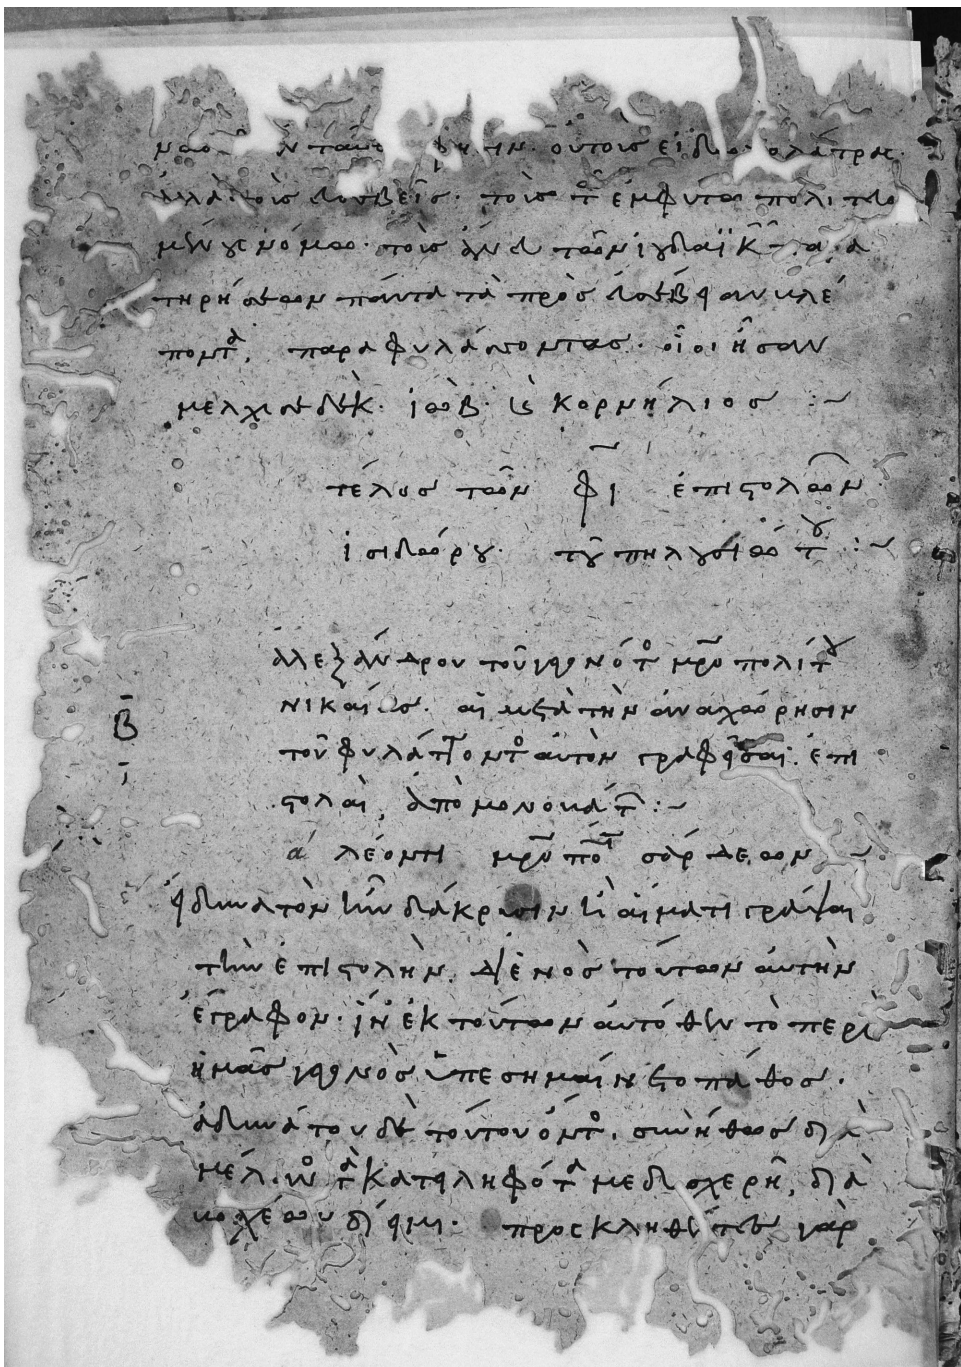 οὗτοις εἰδωλολάτραι.
ἀλλὰ τοῖς εὐσεβεῖς. τοῖς τῶ ἐμφύτω πολιτευο
μένοις νόμω. τοῖς ἄνευ τῶν ἰουδαϊκῶν
τηρήσεων πάντα τὰ πρὸς εὐσέβειαν βλέ
ποντα, παραφυλάττοντας. οἷοι ἦσαν
μελχισεδέκ. ἰώβ. καὶ κορνήλιος :~
τέλος τῶν φι ἐπιστολῶν
ἰσιδώρου. τοῦ πηλουσιώτου :~
Β
ἀλεξάνδρου τοῦ γεγονότος μητροπολίτου
νικαίας. αἱ μετὰ τὴν ἀναχώρησιν
τοῦ φυλάττοντος αὐτὸν γραφεῖσαι ἐπι
στολαὶ, ἀπὸ μονοβάτων :~
α λέοντι μητροπολίτη σάρδεων ~
εἰ δυνατὸν ἦν δάκρυσιν ἢ αἵματι γράψαι
τὴν ἐπιστολὴν, δι' ἑνὸς τούτων αὐτὴν
ἔγραφον. ἵν' ἐκ τούτων αὐτόθεν τὸ περὶ
ἡμᾶς γεγονὸς ὑπεσημαίνετο πάθος.
ἀδυνάτου δὲ τούτου ὄντος, συνήθως διὰ
μέλανος τὰ κατειληφότα με δυσχερῆ, διὰ
βραχέων δίειμι. προσκληθέντες γὰρ